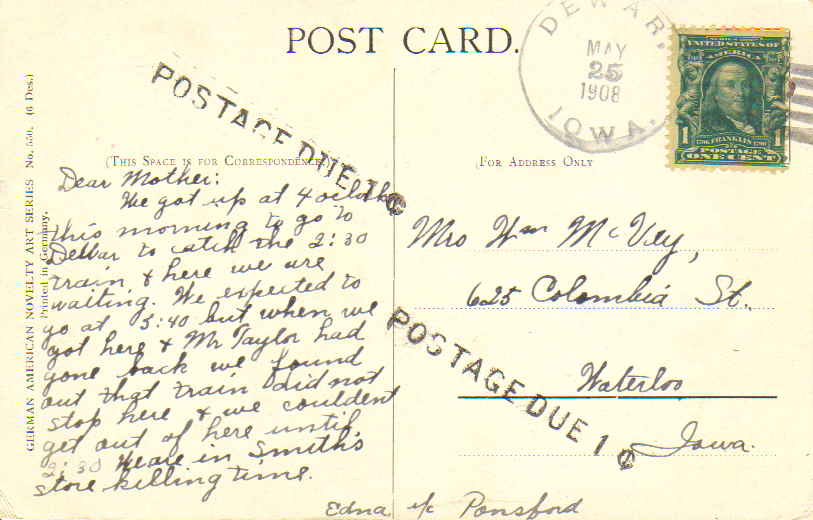 POST CARD.
DEWAR,
MAY
25
1908
IOWA.
UNITED STATES OF
AMERICA
1 1
1706 FRANKLIN 1790
POSTAGE
ONE CENT
POSTAGE DUE 1 ¢
(THIS SPACE IS FOR CORRESPONDENCE.)
(FOR ADDRESS ONLY
GERMAN AMERICAN NOVELTY ART SERIES No. 550. (6 Des.)
Printed in Germany.
Dear Mother:
We got up at 4 oclock
this morning to go to
Dewar to catch the 2:30
train & here we are
waiting. We expected to
go at 5:40 but when we
got here & Mr Taylor had
gone back we found
out that train did not
stop here & we couldent
get out of here until
2:30 We are in Smith's
store killing time.
Edna c/o Ponsford
Mrs Wm McVey,
625 Colombia St.,
Waterloo
Iowa.
POSTAGE DUE 1 ¢